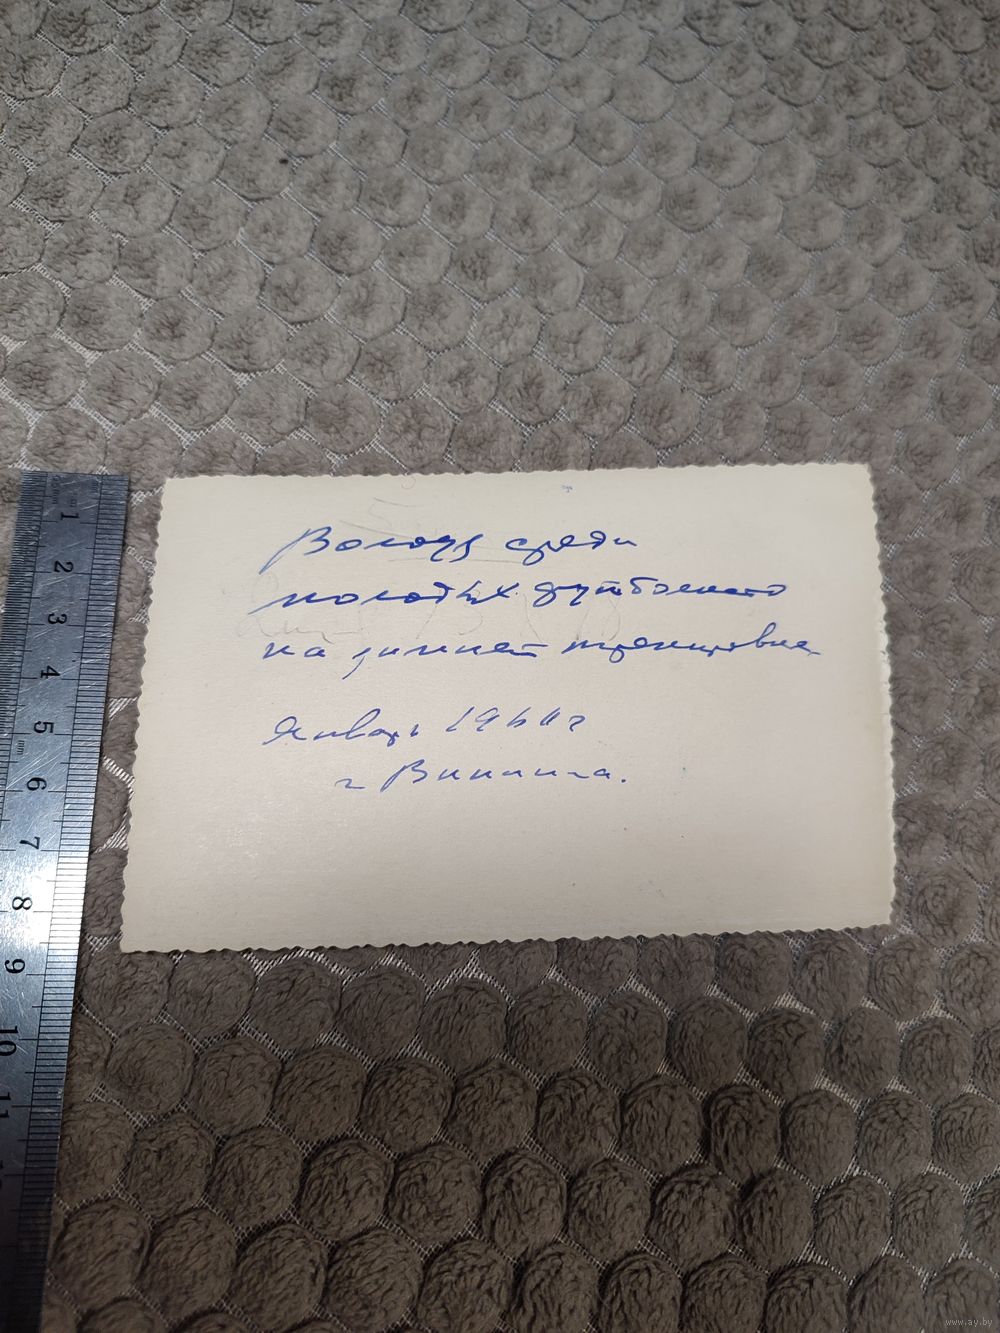 Володя среди
молодых футболистов
на зимней тренировке
Январь 1960 г
г Винница.
1
2
3
4
5
6
7
8
9
10
11
www.ay.by